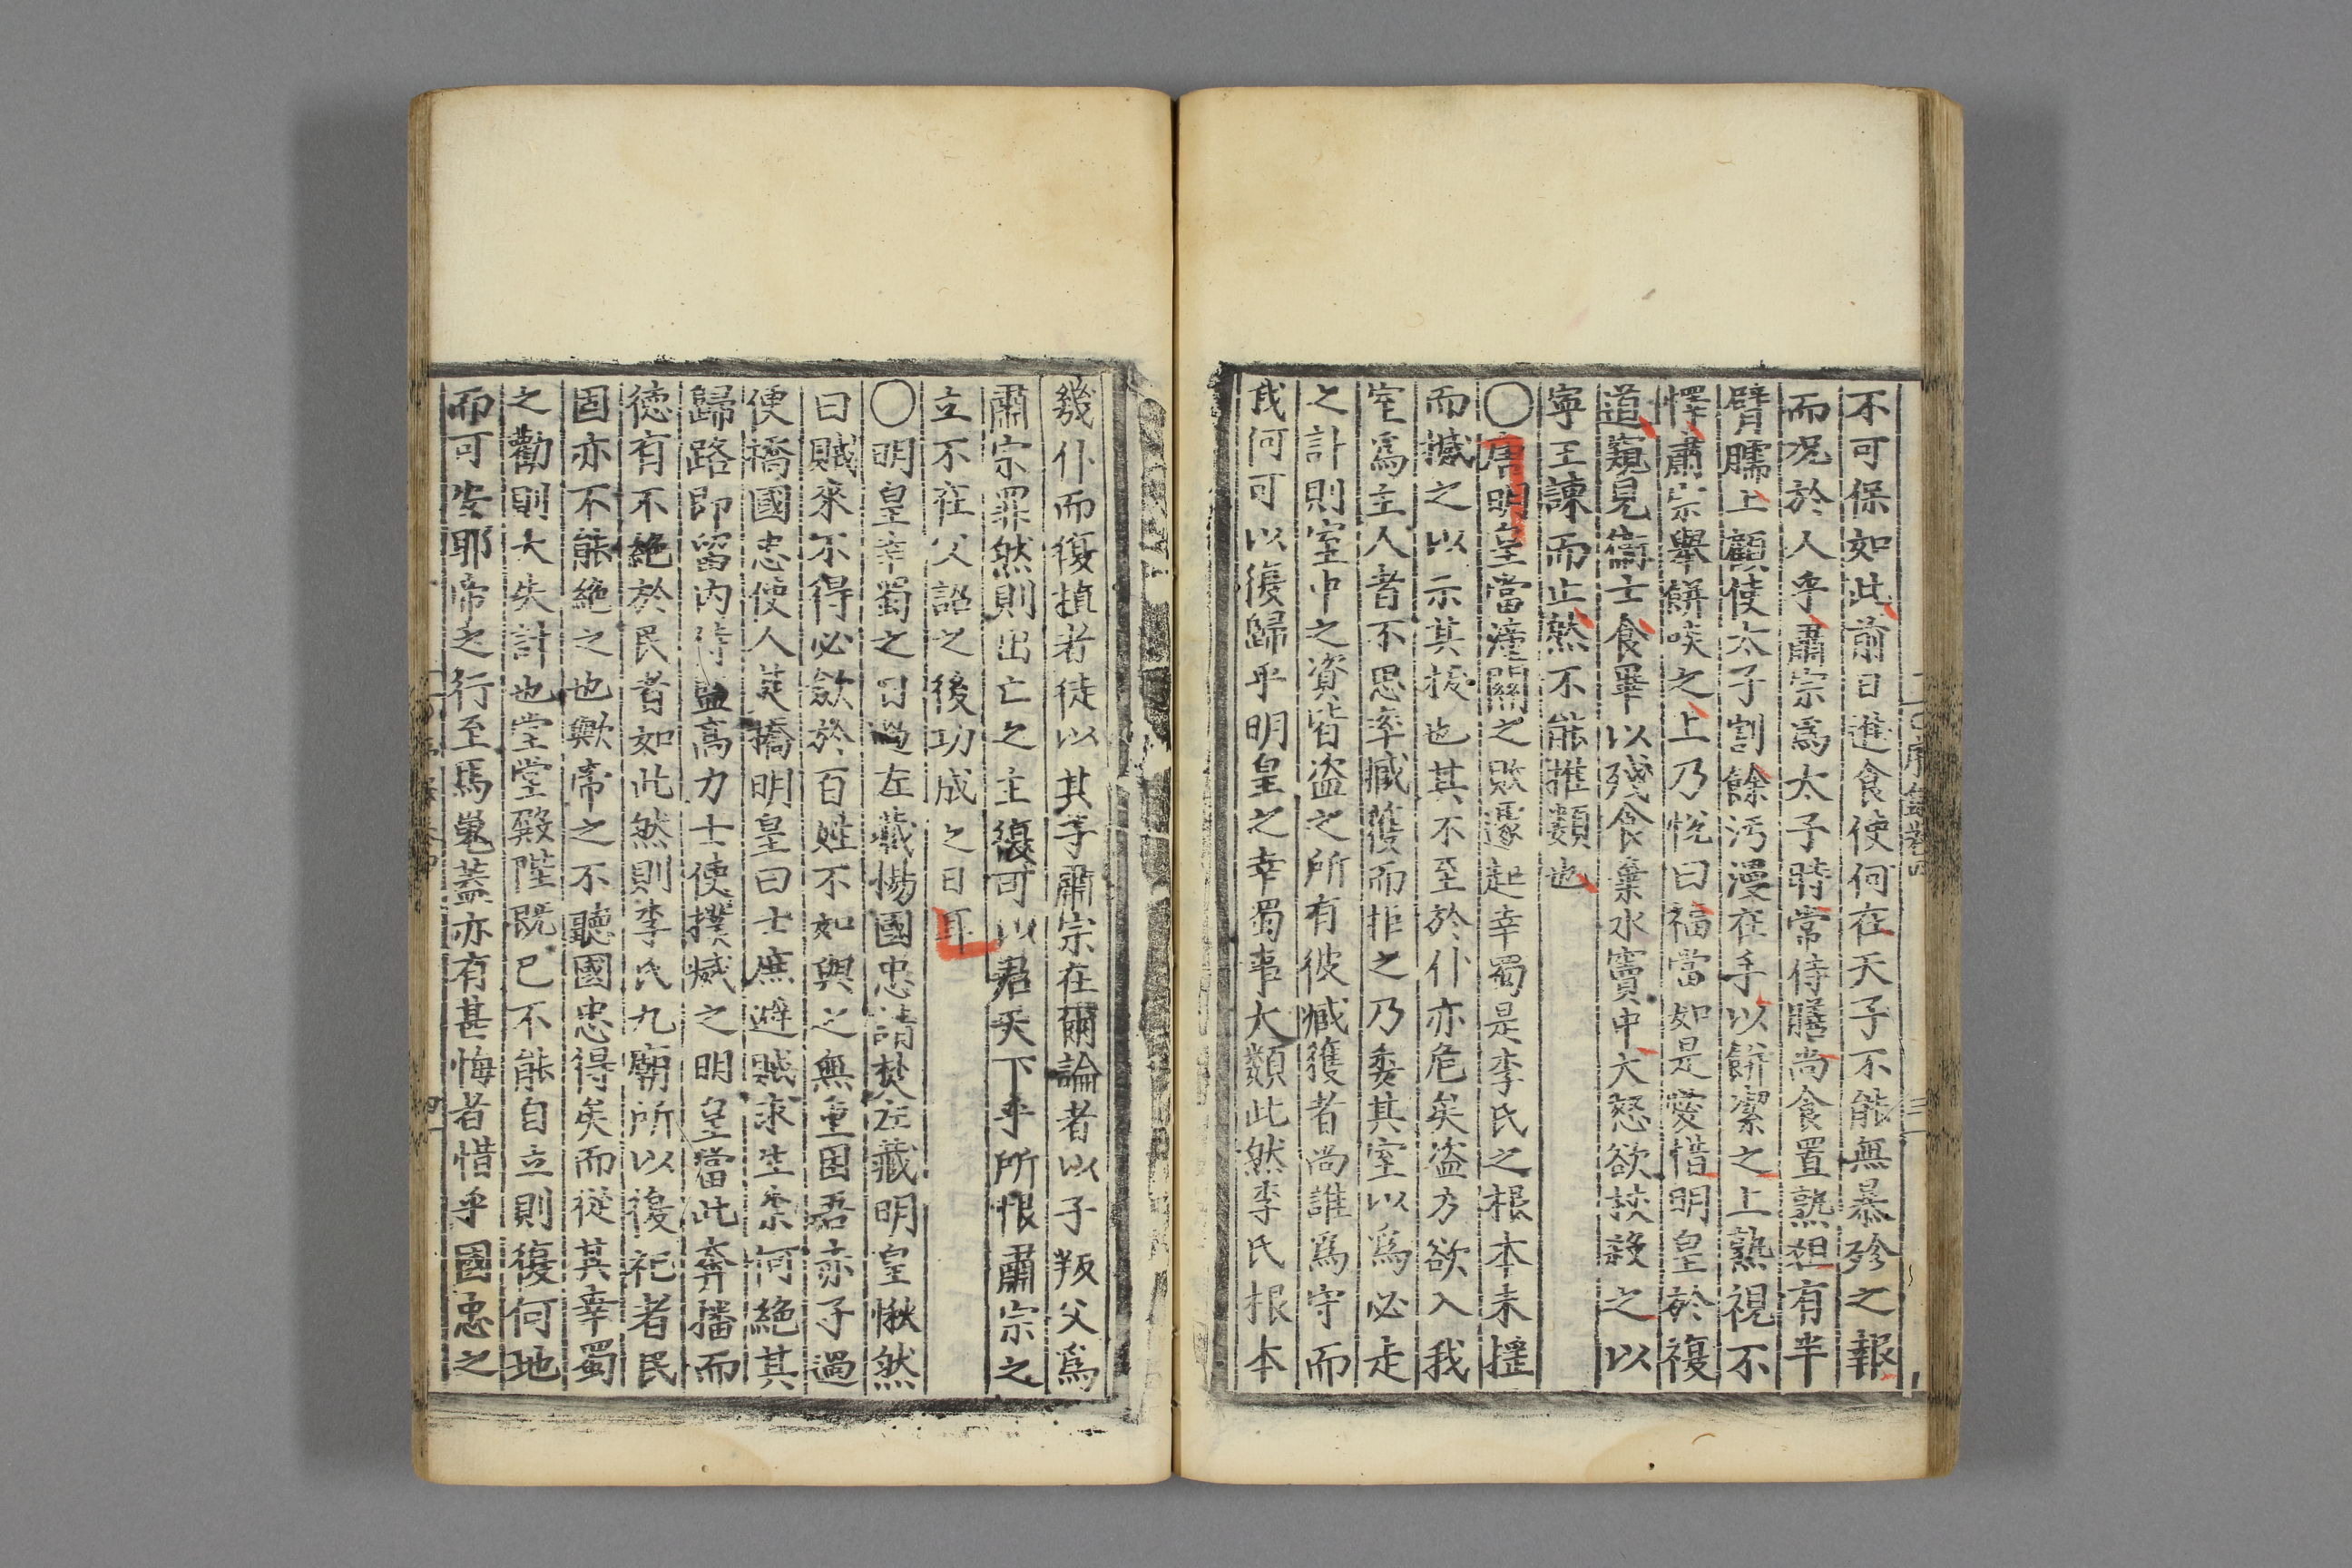 不可保如此前日進食使何在天子不能無暴殄之報
而况於人乎肅宗爲太子時常侍膳尚食置熟狚有羊
臂臑上顧使太子割餘汚漫在手以餅潔之上熟視不
懌肅宗擧餅啖之上乃悅曰福當如是愛惜明皇於復
道窺見衞士食畢以殘食棄水竇中大怒欲挾殺之以
寧王諫而止然不能推類也
〇唐明皇當潼關之敗遽起幸蜀是李氏之根本未搖
而撼之以示其拔也其不至於仆亦危矣盜方欲入我
室爲主人者不思率臧獲而拒之乃委其室以爲必走
之計則室中之資皆盜之所有彼臧獲者尚誰爲守而
我何可以復歸乎明皇之幸蜀事大類此然李氏根本
幾仆而復植者徒以其子肅宗在爾論者以子叛父爲
肅宗罪然則出亡之主復可以君天下乎所恨肅宗之
立不在父詔之後功成之日耳
〇明皇幸蜀之日過左藏楊國忠請焚左藏明皇愀然
曰賊來不得必斂於百姓不如與之無重困吾赤子過
便橋國忠使人焚橋明皇曰士庶避賊求生柰何絶其
歸路即留內侍監高力士使撲滅之明皇當此奔播而
德有不絶於民者如此然則李氏九廟所以復祀者民
固亦不能絶之也歟帝之不聽國忠得矣而從其幸蜀
之勸則大失計也堂堂殿陛既已不能自立則復何地
而可安耶帝之行至馬嵬蓋亦有甚悔者惜乎國忠之